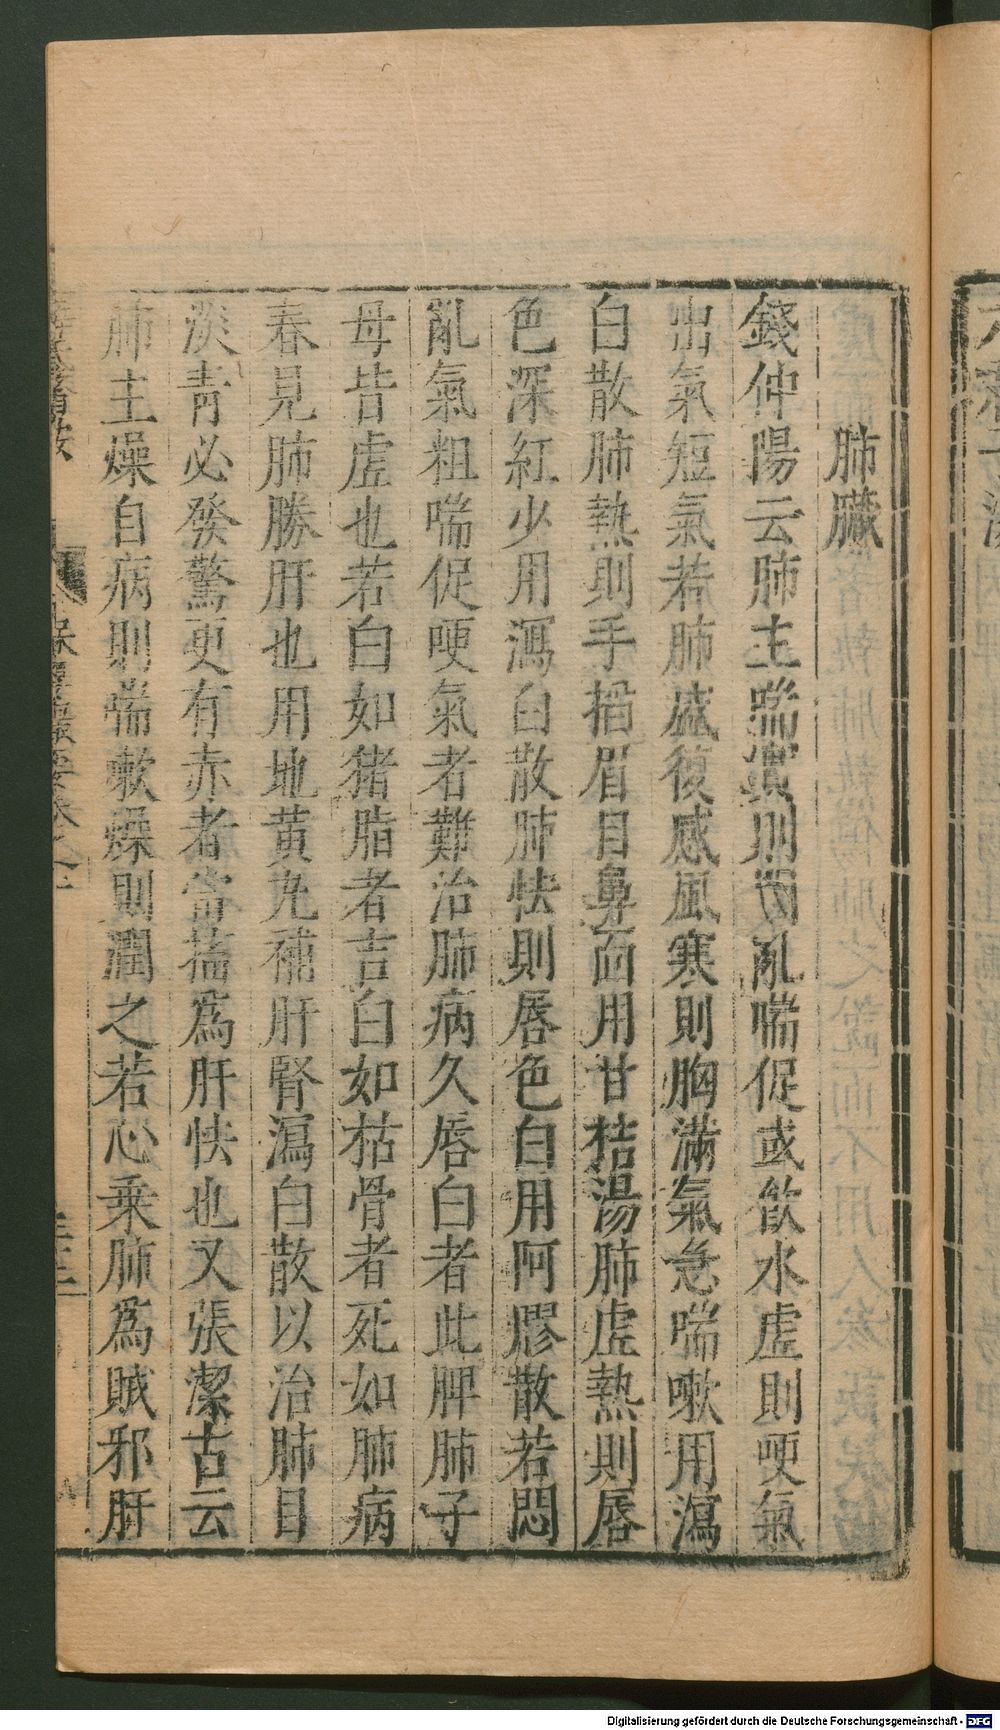 肺臟
錢仲陽云肺主喘實則悶亂喘促或飲水虛則哽氣
出氣短氣若肺盛復感風寒則胸滿氣急喘嗽用瀉
白散肺熱則手掐眉目鼻面用甘桔湯肺虛熱則唇
色深紅少用瀉白散肺怯則唇色白用阿膠散若悶
亂氣粗喘促哽氣者難治肺病久唇白者此脾肺子
母皆虛也若白如猪脂者吉白如枯骨者死如肺病
春見肺勝肝也用地黃丸補肝腎瀉白散以治肺目
淡青必發驚更有赤者當搐爲肝怯也又張潔古云
肺主燥自病則喘嗽燥則潤之若心乗肺爲賊邪肝
保嬰撮要卷之一
Digitalisierung gefördert durch die Deutsche Forschungsgemeinschaft - DFG